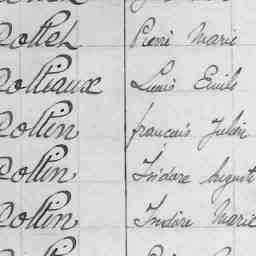 Pollet Pierre Marie
Polliaux Louis Emile
Pollin français Julien
Pollin Isidore August
Pollin Isidore Marie